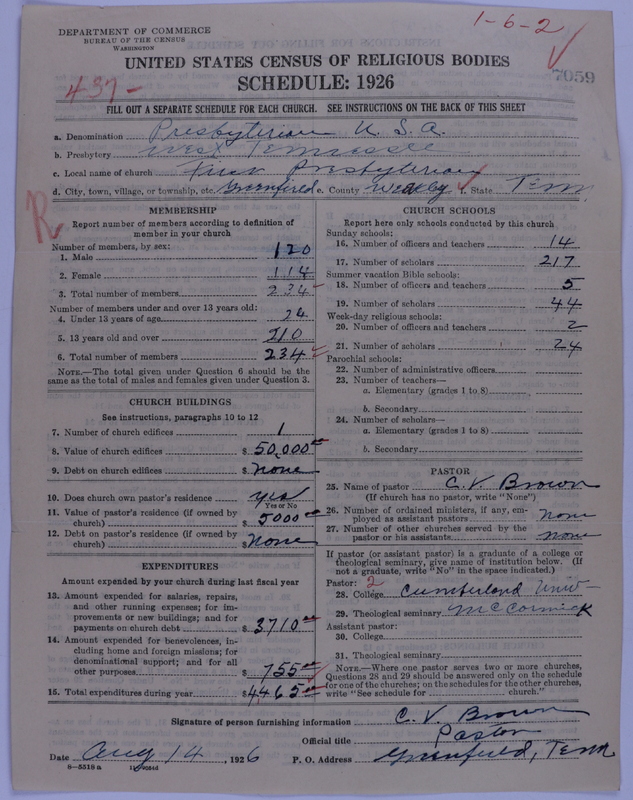 DEPARTMENT OF COMMERCE
BUREAU OF THE CENSUS
WASHINGTON
1-6-2
UNITED STATES CENSUS OF RELIGIOUS BODIES
SCHEDULE: 1926
437-
7059
FILL OUT A SEPARATE SCHEDULE FOR EACH CHURCH. SEE INSTRUCTIONS ON THE BACK OF THIS SHEET
a. Denomination Presbyterian U. S. A.
b. Presbytery West Tennessee
c. Local name of church First Presbyterian
d. City, town, village, or township, etc. Greenfield e. County Weakley f. State Tenn
R
MEMBERSHIP
Report number of members according to definition of
member in your church
Number of members, by sex:
1. Male 120
2. Female 114
3. Total number of members 234
Number of members under and over 13 years old:
4. Under 13 years of age 24
5. 13 years old and over 210
6. Total number of members 234
NOTE.—The total given under Question 6 should be the
same as the total of males and females given under Question 3.
CHURCH BUILDINGS
See instructions, paragraphs 10 to 12
7. Number of church edifices 1
8. Value of church edifices $ 50,000 00
9. Debt on church edifices $ None
10. Does church own pastor's residence yes
Yes or No
11. Value of pastor's residence (if owned by
church) $ 5000 00
12. Debt on pastor's residence (if owned by
church) $ None
EXPENDITURES
Amount expended by your church during last fiscal year
13. Amount expended for salaries, repairs,
and other running expenses; for im-
provements or new buildings; and for
payments on church debt $ 3710 00
14. Amount expended for benevolences, in-
cluding home and foreign missions; for
denominational support; and for all
other purposes $ 755 00
15. Total expenditures during year $ 4465 00
CHURCH SCHOOLS
Report here only schools conducted by this church
Sunday schools:
16. Number of officers and teachers 14
17. Number of scholars 217
Summer vacation Bible schools:
18. Number of officers and teachers 5
19. Number of scholars 44
Week-day religious schools:
20. Number of officers and teachers 2
21. Number of scholars 24
Parochial schools:
22. Number of administrative officers
23. Number of teachers—
a. Elementary (grades 1 to 8)
b. Secondary
24. Number of scholars—
a. Elementary (grades 1 to 8)
b. Secondary
PASTOR
25. Name of pastor C. V. Brown
(If church has no pastor, write "None")
26. Number of ordained ministers, if any, em-
ployed as assistant pastors none
27. Number of other churches served by the
pastor or his assistants none
If pastor (or assistant pastor) is a graduate of a college or
theological seminary, give name of institution below. (If
not a graduate, write "No" in the space indicated.)
Pastor: 2
28. College Cumberland Univ
29. Theological seminary McCormick
Assistant pastor:
30. College
31. Theological seminary
NOTE.—Where one pastor serves two or more churches,
Questions 28 and 29 should be answered only on the schedule
for one of the churches; on the schedules for the other churches,
write "See schedule for church."
Signature of person furnishing information C. V. Brown
Official title Pastor
Date Aug 14, 1926 P. O. Address Greenfield, Tenn
8—5318 a